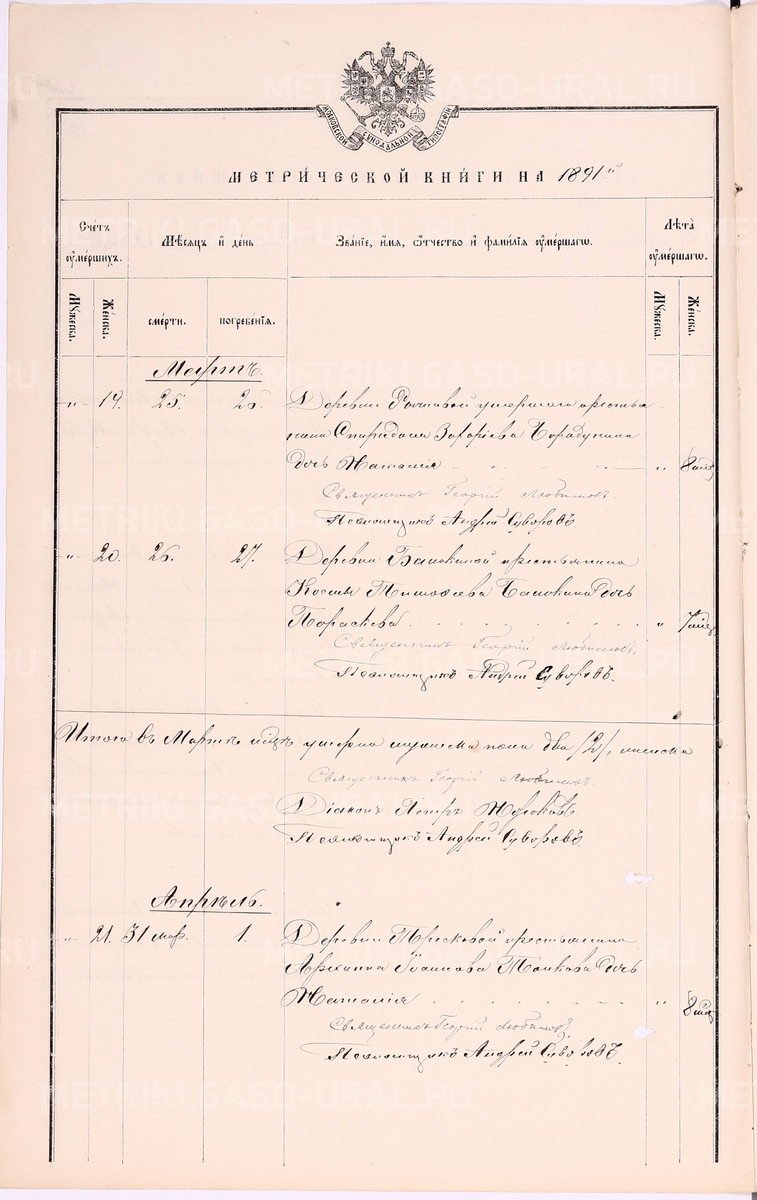 МОСКОВСКОЙ СѴНОДАЛЬНОЙ ТИПОГРАФІИ
МЕТРИ́ЧЕСКОЙ КНИ́ГИ НА 1891 й
Сче́тъ ᲂу҆ме́ршихъ.
Мѣ́сяцъ и҆ де́нь
Зва́нїе, и҆́мѧ, ѻ҆́тчество и҆ фами́лїѧ ᲂу҆ме́ршагѡ.
Лѣ́та ᲂу҆ме́ршагѡ.
Мꙋ́жеска.
Же́нска.
сме́рти.
погребе́нїѧ.
Мꙋ́жеска.
Же́нска.
Мартъ.
„ 19. 25. 26. Деревни умершаго крестья
нина Спиридона Захаріева
дочь Наталія „ 8
Священникъ Георгій Любимовъ.
Псаломщикъ Андрей Суворовъ.
„ 20. 26. 27. Деревни крестьянина
Космы Тимоѳеева дочь
Параскева „ 7
Священникъ Георгій Любимовъ.
Псаломщикъ Андрей Суворовъ.
Итого въ Мартѣ мцѣ умерло мужеска пола два /2/, женска
Священникъ Георгій Любимовъ.
Діаконъ Петръ
Псаломщикъ Андрей Суворовъ.
Апрѣль.
„ 21. 31 мар. 1. Деревни крестьянина
Архиппа Іоаннова дочь
Наталія „ 8
Священникъ Георгій Любимовъ.
Псаломщикъ Андрей Суворовъ.
METRIKI.GASO-URAL.RU